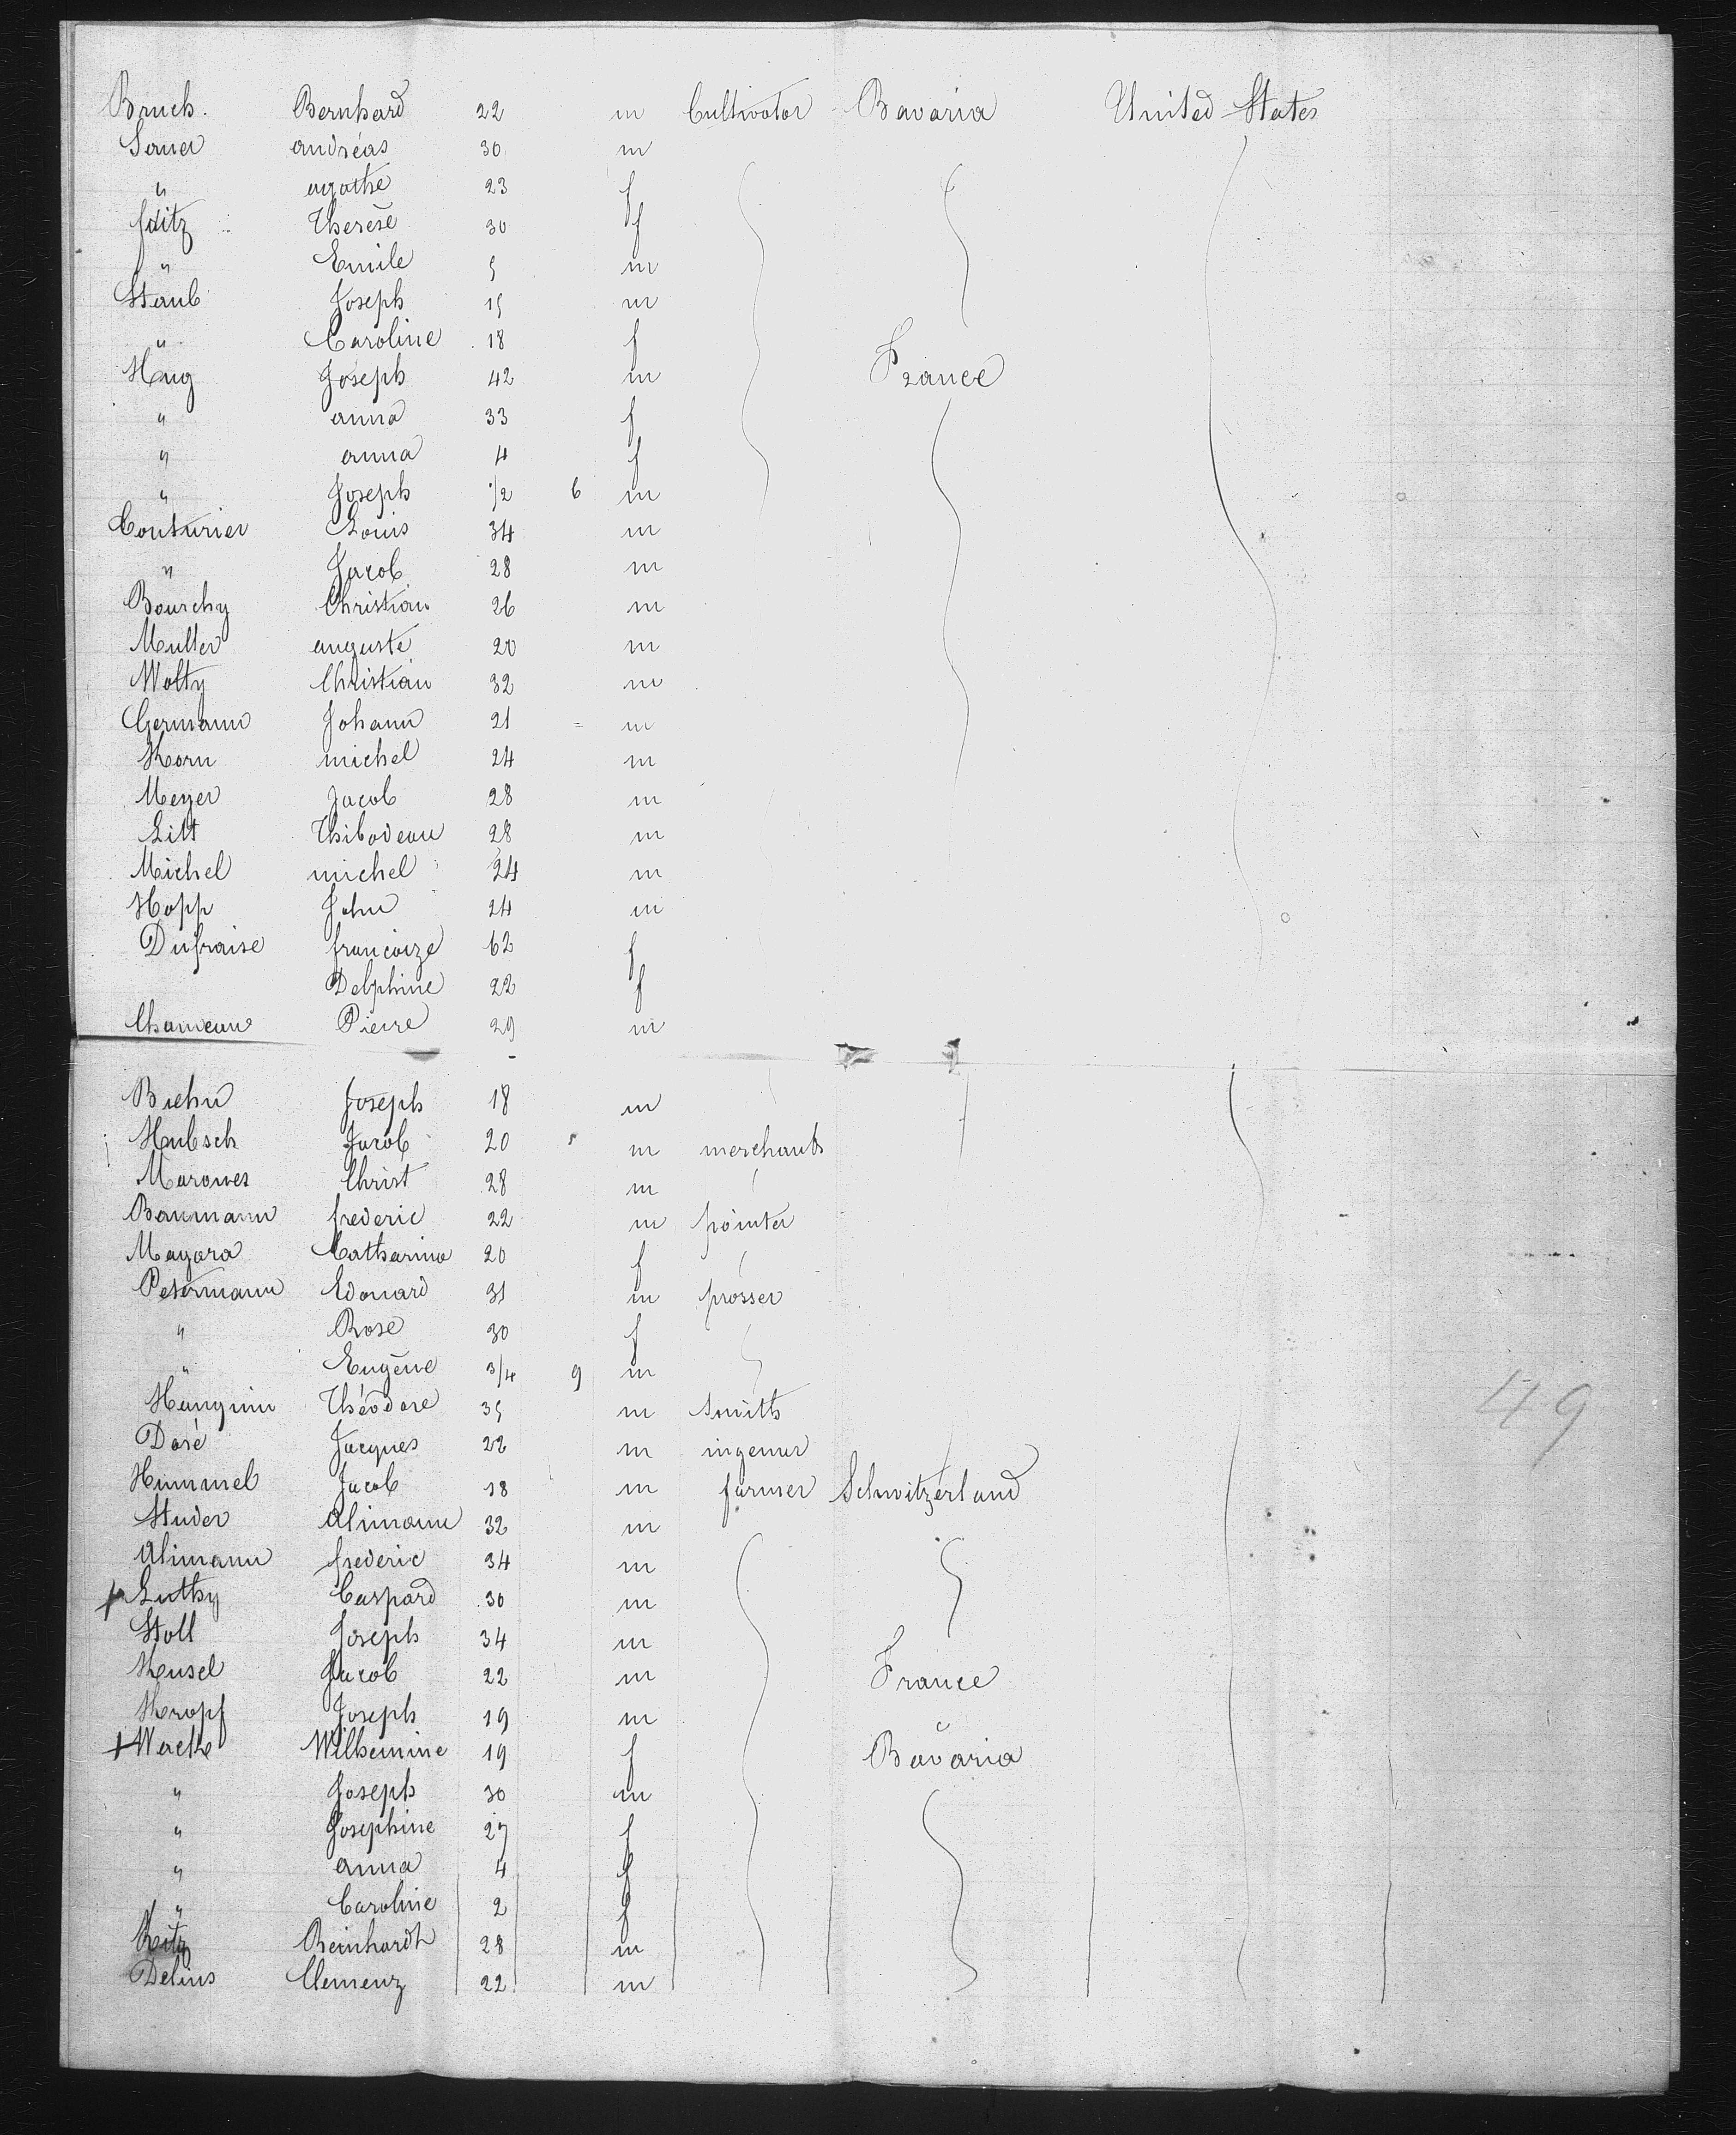 Bruch. Bernhard 22 m Cultivator Bavaria United States
Sauer andréas 30 m
" agathe 23 f
fritz Therese 30 f
" Emile 5 m
Staub Joseph 15 m
" Caroline 18 f
Hug Joseph 42 m France
" anna 33 f
" anna 4 f
" Joseph 1/2 6 m
Couturier Louis 34 m
" Jacob 28 m
Bourchy Christian 26 m
Muller auguste 20 m
Wolty Christian 32 m
Germann Johann 21 = m
Korn michel 24 m
Meyer Jacob 28 m
Litt Thibodeau 28 m
Michel michel 24 m
Hopp John 24 m
Dufraise françoize 62 f
Delphine 22 f
Chameau Pierre 29 m
Biehn Joseph 18 m
Hubsch Jacob 20 m merchants
Marower Christ 28 m
Baumann frederic 22 m pointer
Mayora Catharina 20 f
Petermann Edouard 31 m prosser
" Rose 30 f
" Eugène 3/4 9 m
Hanguin Théodore 35 m smith
Doré Jacques 22 m ingenur
49
Hummel Jacob 18 m farmer Schwitzerland
Studer Alimann 32 m
Alimann frederic 34 m
Luthy Caspard 30 m
Stoll Joseph 34 m
Heusel Jacob 22 m France
Kropf Joseph 19 m
+ Wilhemine 19 f Bavaria
" Joseph 30 m
" Josephine 27 f
" anna 4 f
" Caroline 2 f
Reinhardt 28 m
Delius Clemenz 22 m